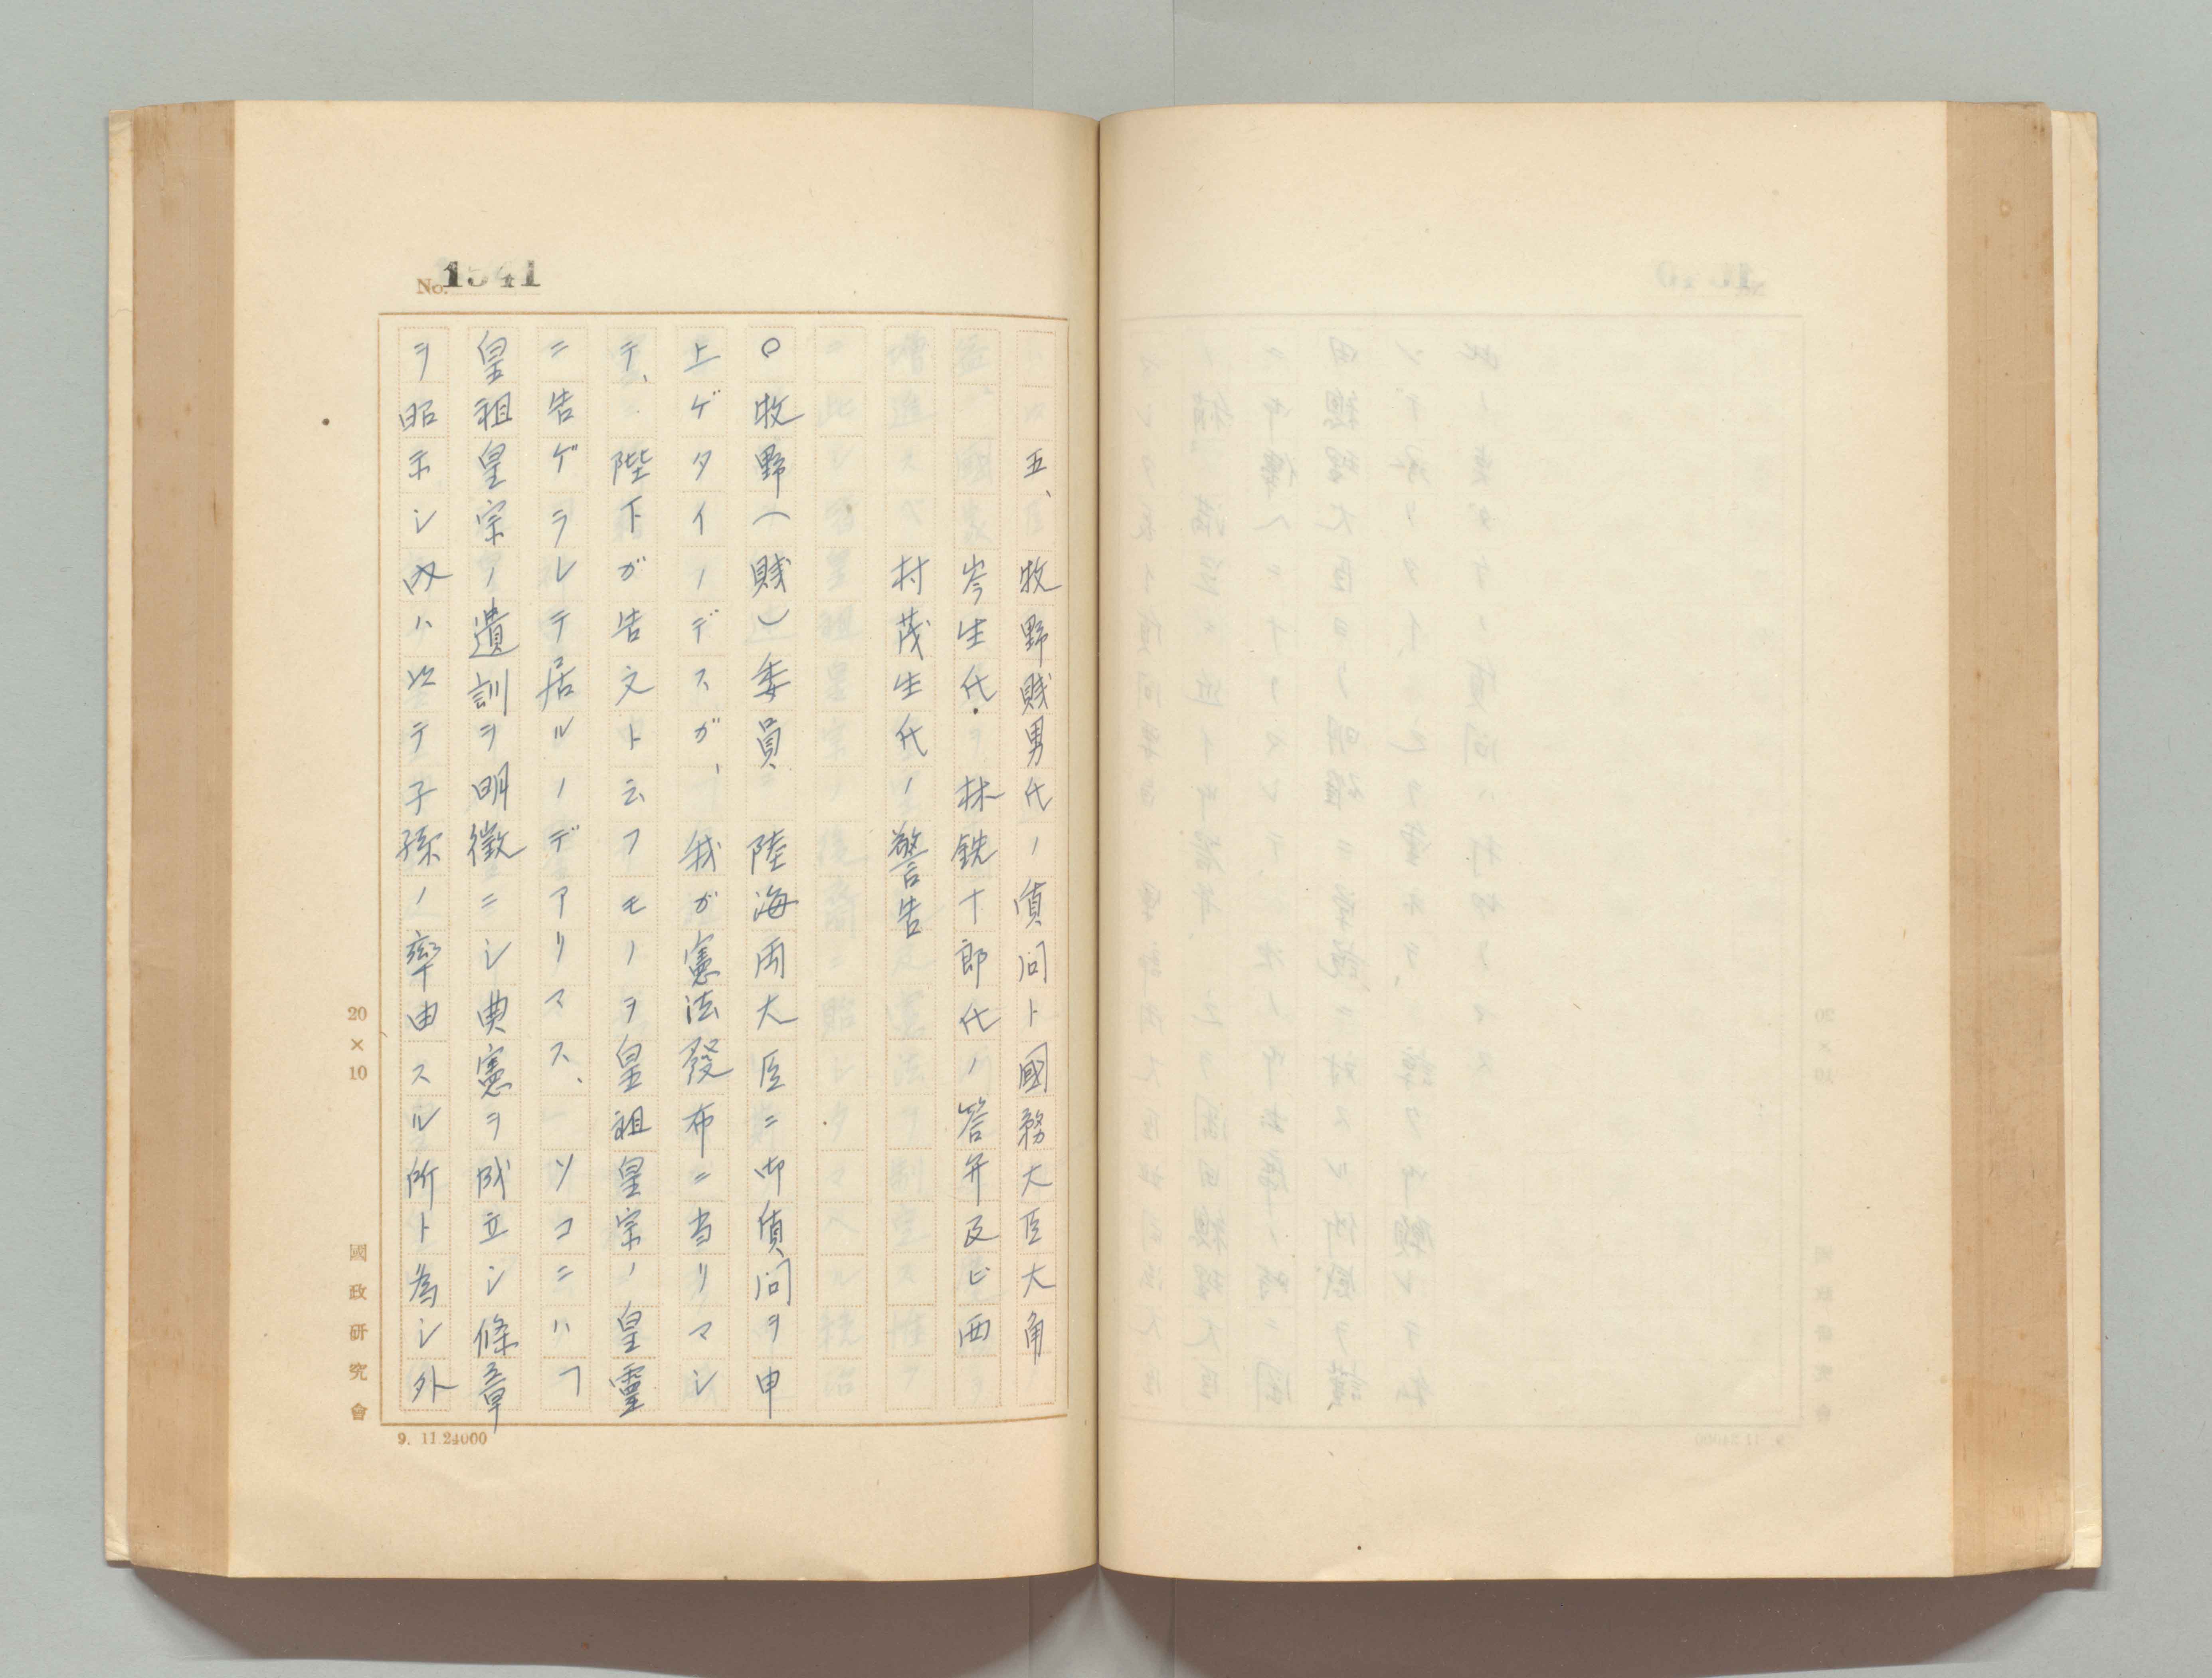 No. 1541
五、牧野賎男氏ノ質問ト國務大臣大角
岑生氏・林銑十郎氏ノ答弁及ビ西
村茂生氏ノ警告
○牧野(賎)委員　陸海両大臣ニ御質問ヲ申
上ゲタイノデスガ、我ガ憲法發布ニ当リマシ
テ、陛下ガ告文ト云フモノヲ皇祖皇宗ノ皇靈
ニ告ゲラレテ居ルノデアリマス、ソコニハ「
皇祖皇宗ノ遺訓ヲ明徴ニシ典憲ヲ成立シ條章
ヲ昭示シ内ハ以テ子孫ノ率由スル所ト為シ外
20×10
國政研究會
9. 11.24000